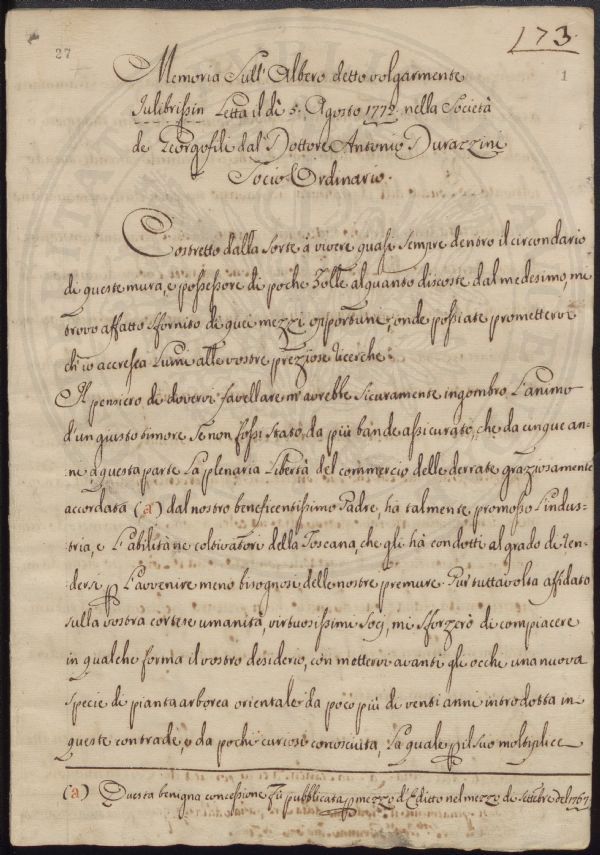 27
173.
1
Memoria Sull' Albero detto volgarmente
Iulibrissin Letta il dì 5. Agosto 1772 nella Società
de Georgofili dal Dottore Antonio Durazzini
Socio Ordinario.
Costretto dalla Sorte à vivere quasi sempre dentro il circondario
di queste mura, e possessore di poche Zolle alquanto discoste dal medesimo, mi
trovo affatto sfornito di quei mezzi opportuni, onde possiate promettervi
ch'io accresca Lumi alle vostre preziose ricerche.
Il pensiero di dovervi favellare m'avrebbe sicuramente ingombro L'animo
d'un giusto timore se non fossi stato da più bande assicurato, che da cinque an-
ni à questa parte La plenaria Libertà del commercio delle derrate graziosamente
accordata (a) dal nostro beneficentissimo Padre, hà talmente promosso L'indus-
tria, e L'abilità ne coltivatori della Toscana, che gli hà condotti al grado di ren-
dersi p L'avvenire meno bisognosi delle nostre premure. Pur tuttavolta affidato
sulla vostra cortese umanità, virtuosissimi Socj, mi sforzerò di compiacere
in qualche forma il vostro desiderio, con mettervi avanti gli occhi una nuova
specie di pianta arborea orientale da poco più di venti anni introdotta in
queste contrade, e da pochi curiosi conosciuta, La quale p il suo moltiplice
(a) Questa benigna concessione fù pubblicata p mezzo d'Editto nel mezzo di Settebre del 1767.